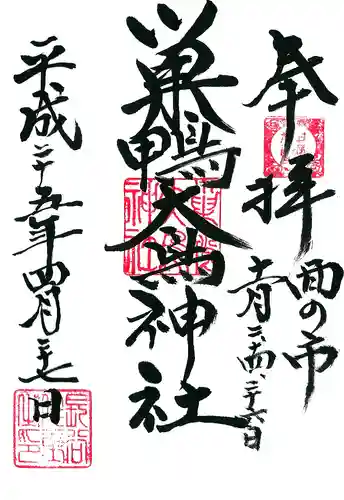 奉拝
酉の市
十一月三・十五、二十七日
巣鴨大鳥神社
平成二十五年四月二十七日